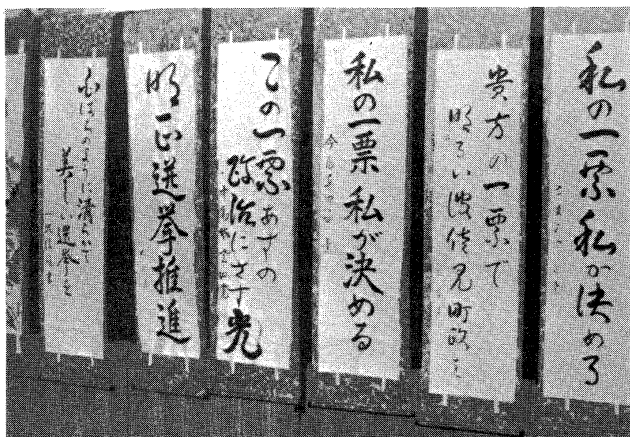 私の一票私が決める
貴方の一票で
明るい波佐見町政を
私の一票私が決める
この一票あすの
政治にさす光
明正選挙推進
美しい選挙を